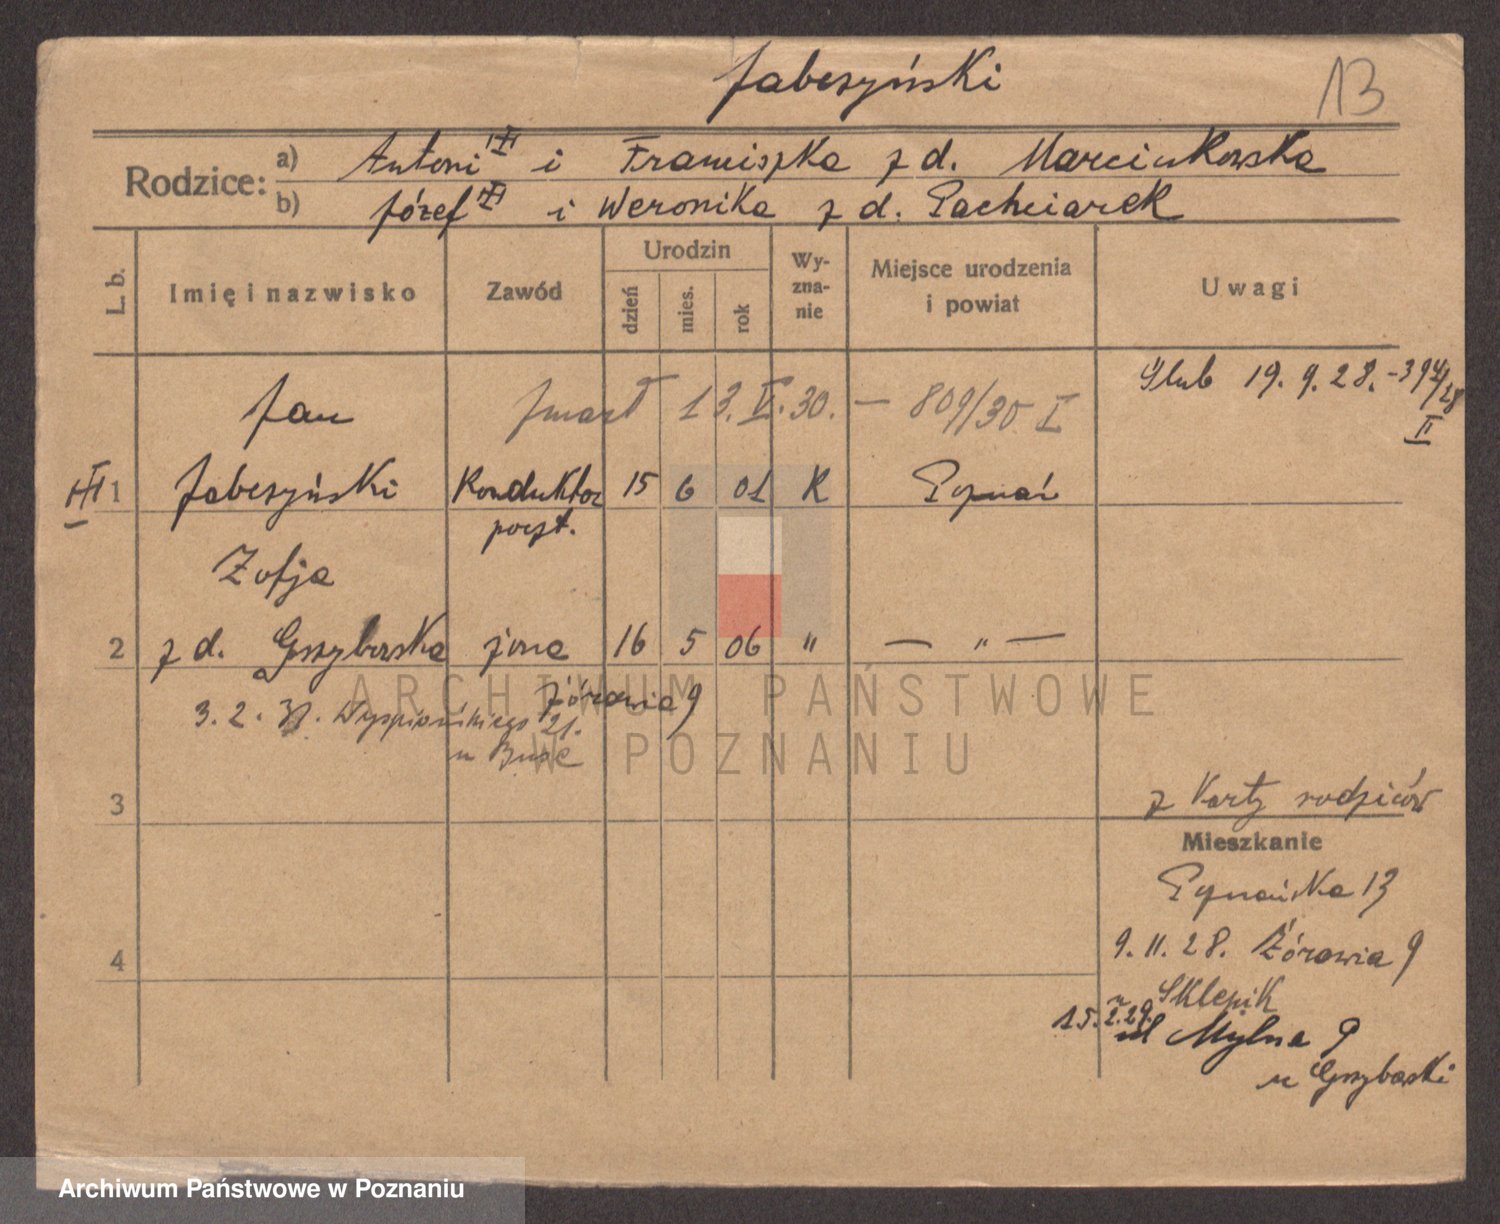 Jabczyński
13
Rodzice:
a) Antoni i Franciszka z d. Marcinkowska
b) Józef i Weronika z d. Pachciarek
L. b.
Imię i nazwisko
Zawód
Urodzin
dzień
mies.
rok
Wy-
zna-
nie
Miejsce urodzenia
i powiat
Uwagi
Ślub 19. 9. 28. - 394/28
II
Jan zmarł 13. V. 30. — 809/30 I
1 Jabczyński Konduktor 15 6 01 K Poznań
poczt.
Zofja
2 z d. Grzybowska żona 16 5 06 " — " —
Żórawia 9
3. 2. Wyspiańskiego 21.
u
3
z Karty rodziców
Mieszkanie
Poznańska 13
9. 11. 28. Żórawia 9
4
u Sklepik
15. 2. 29.
ul Mylna 9
u Grzybowski
ARCHIWUM PAŃSTWOWE
W POZNANIU
Archiwum Państwowe w Poznaniu